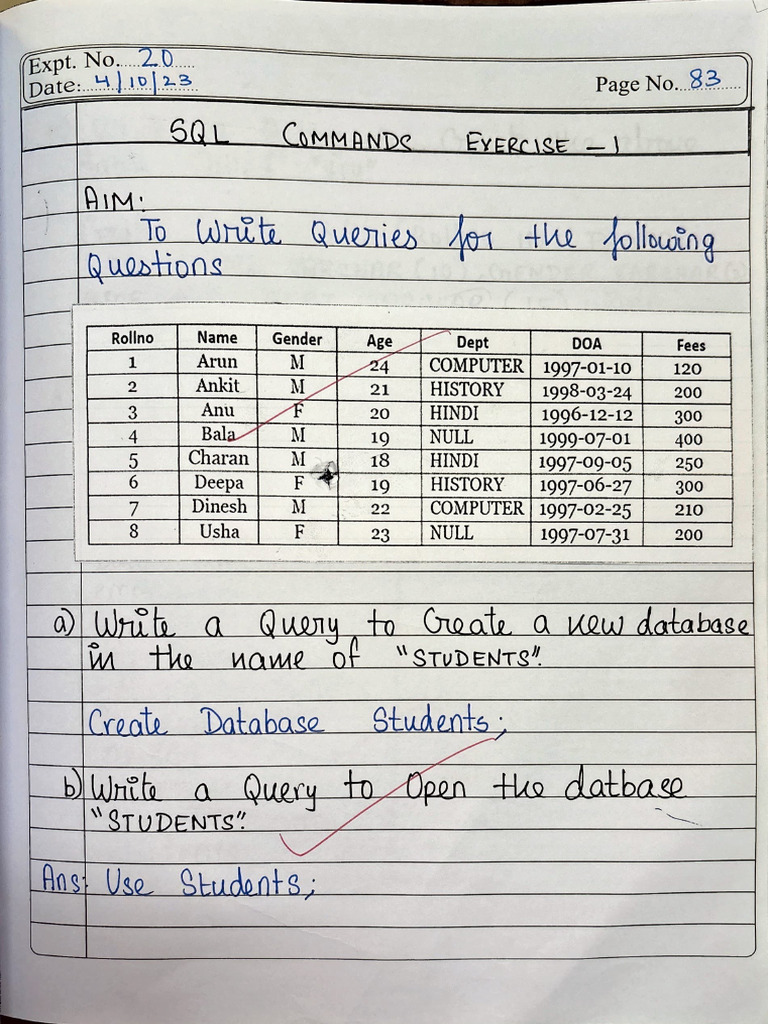 Expt. No. 20
Date: 4/10/23
Page No. 83
SQL COMMANDS EXERCISE - 1
AIM:
To Write Queries for the following
Questions
Rollno Name Gender Age Dept DOA Fees
1 Arun M 24 COMPUTER 1997-01-10 120
2 Ankit M 21 HISTORY 1998-03-24 200
3 Anu F 20 HINDI 1996-12-12 300
4 Bala M 19 NULL 1999-07-01 400
5 Charan M 18 HINDI 1997-09-05 250
6 Deepa F 19 HISTORY 1997-06-27 300
7 Dinesh M 22 COMPUTER 1997-02-25 210
8 Usha F 23 NULL 1997-07-31 200
a) Write a Query to Create a new database
in the name of "STUDENTS".
Create Database Students;
b) Write a Query to Open the datbase
"STUDENTS".
Ans: Use Students;